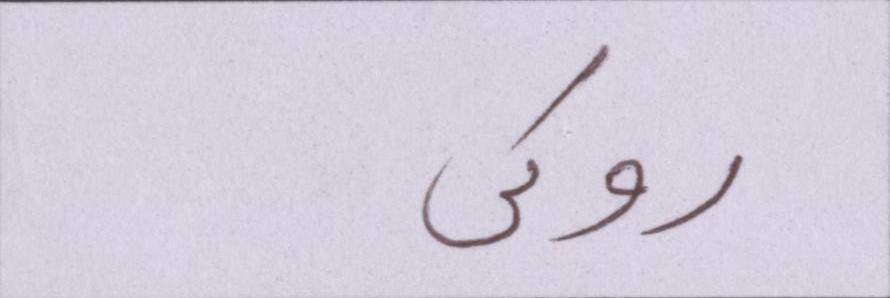 روکی